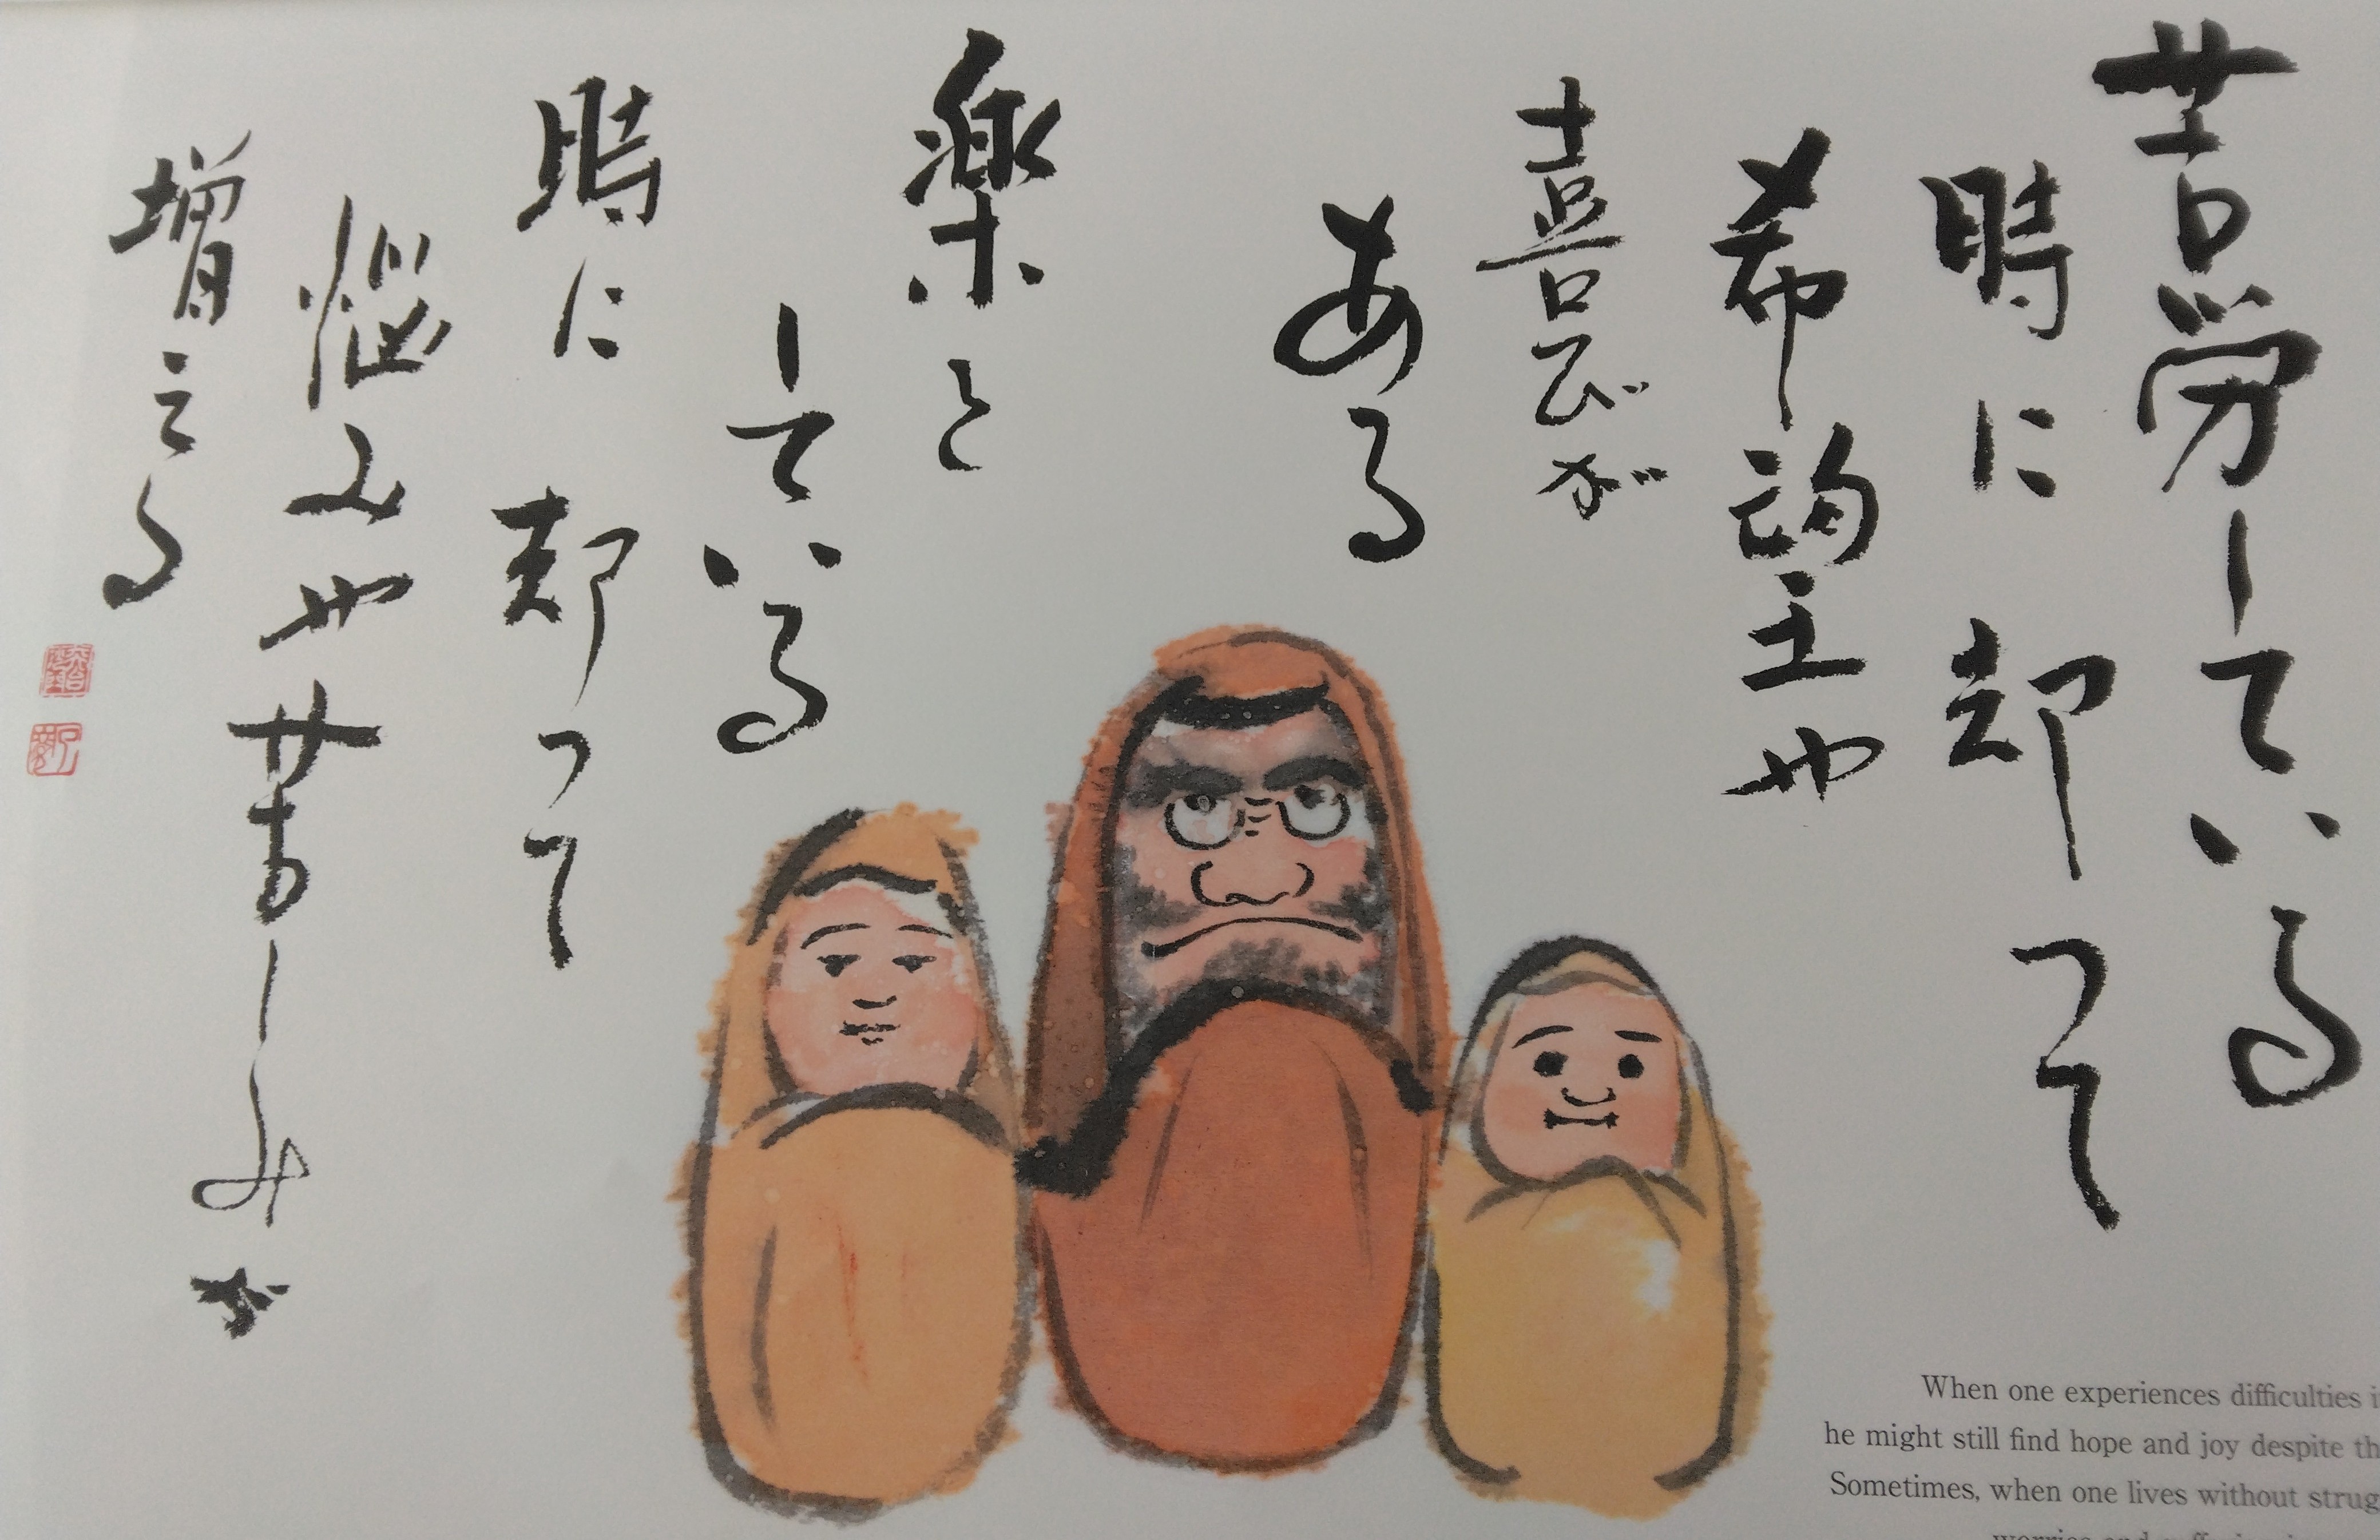 苦労している
時に却って
希望や
喜びが
ある
楽と
している
時に却って
悩みや苦しみが
増える
When one experiences difficulties
he might still find hope and joy despite
Sometimes, when one lives without